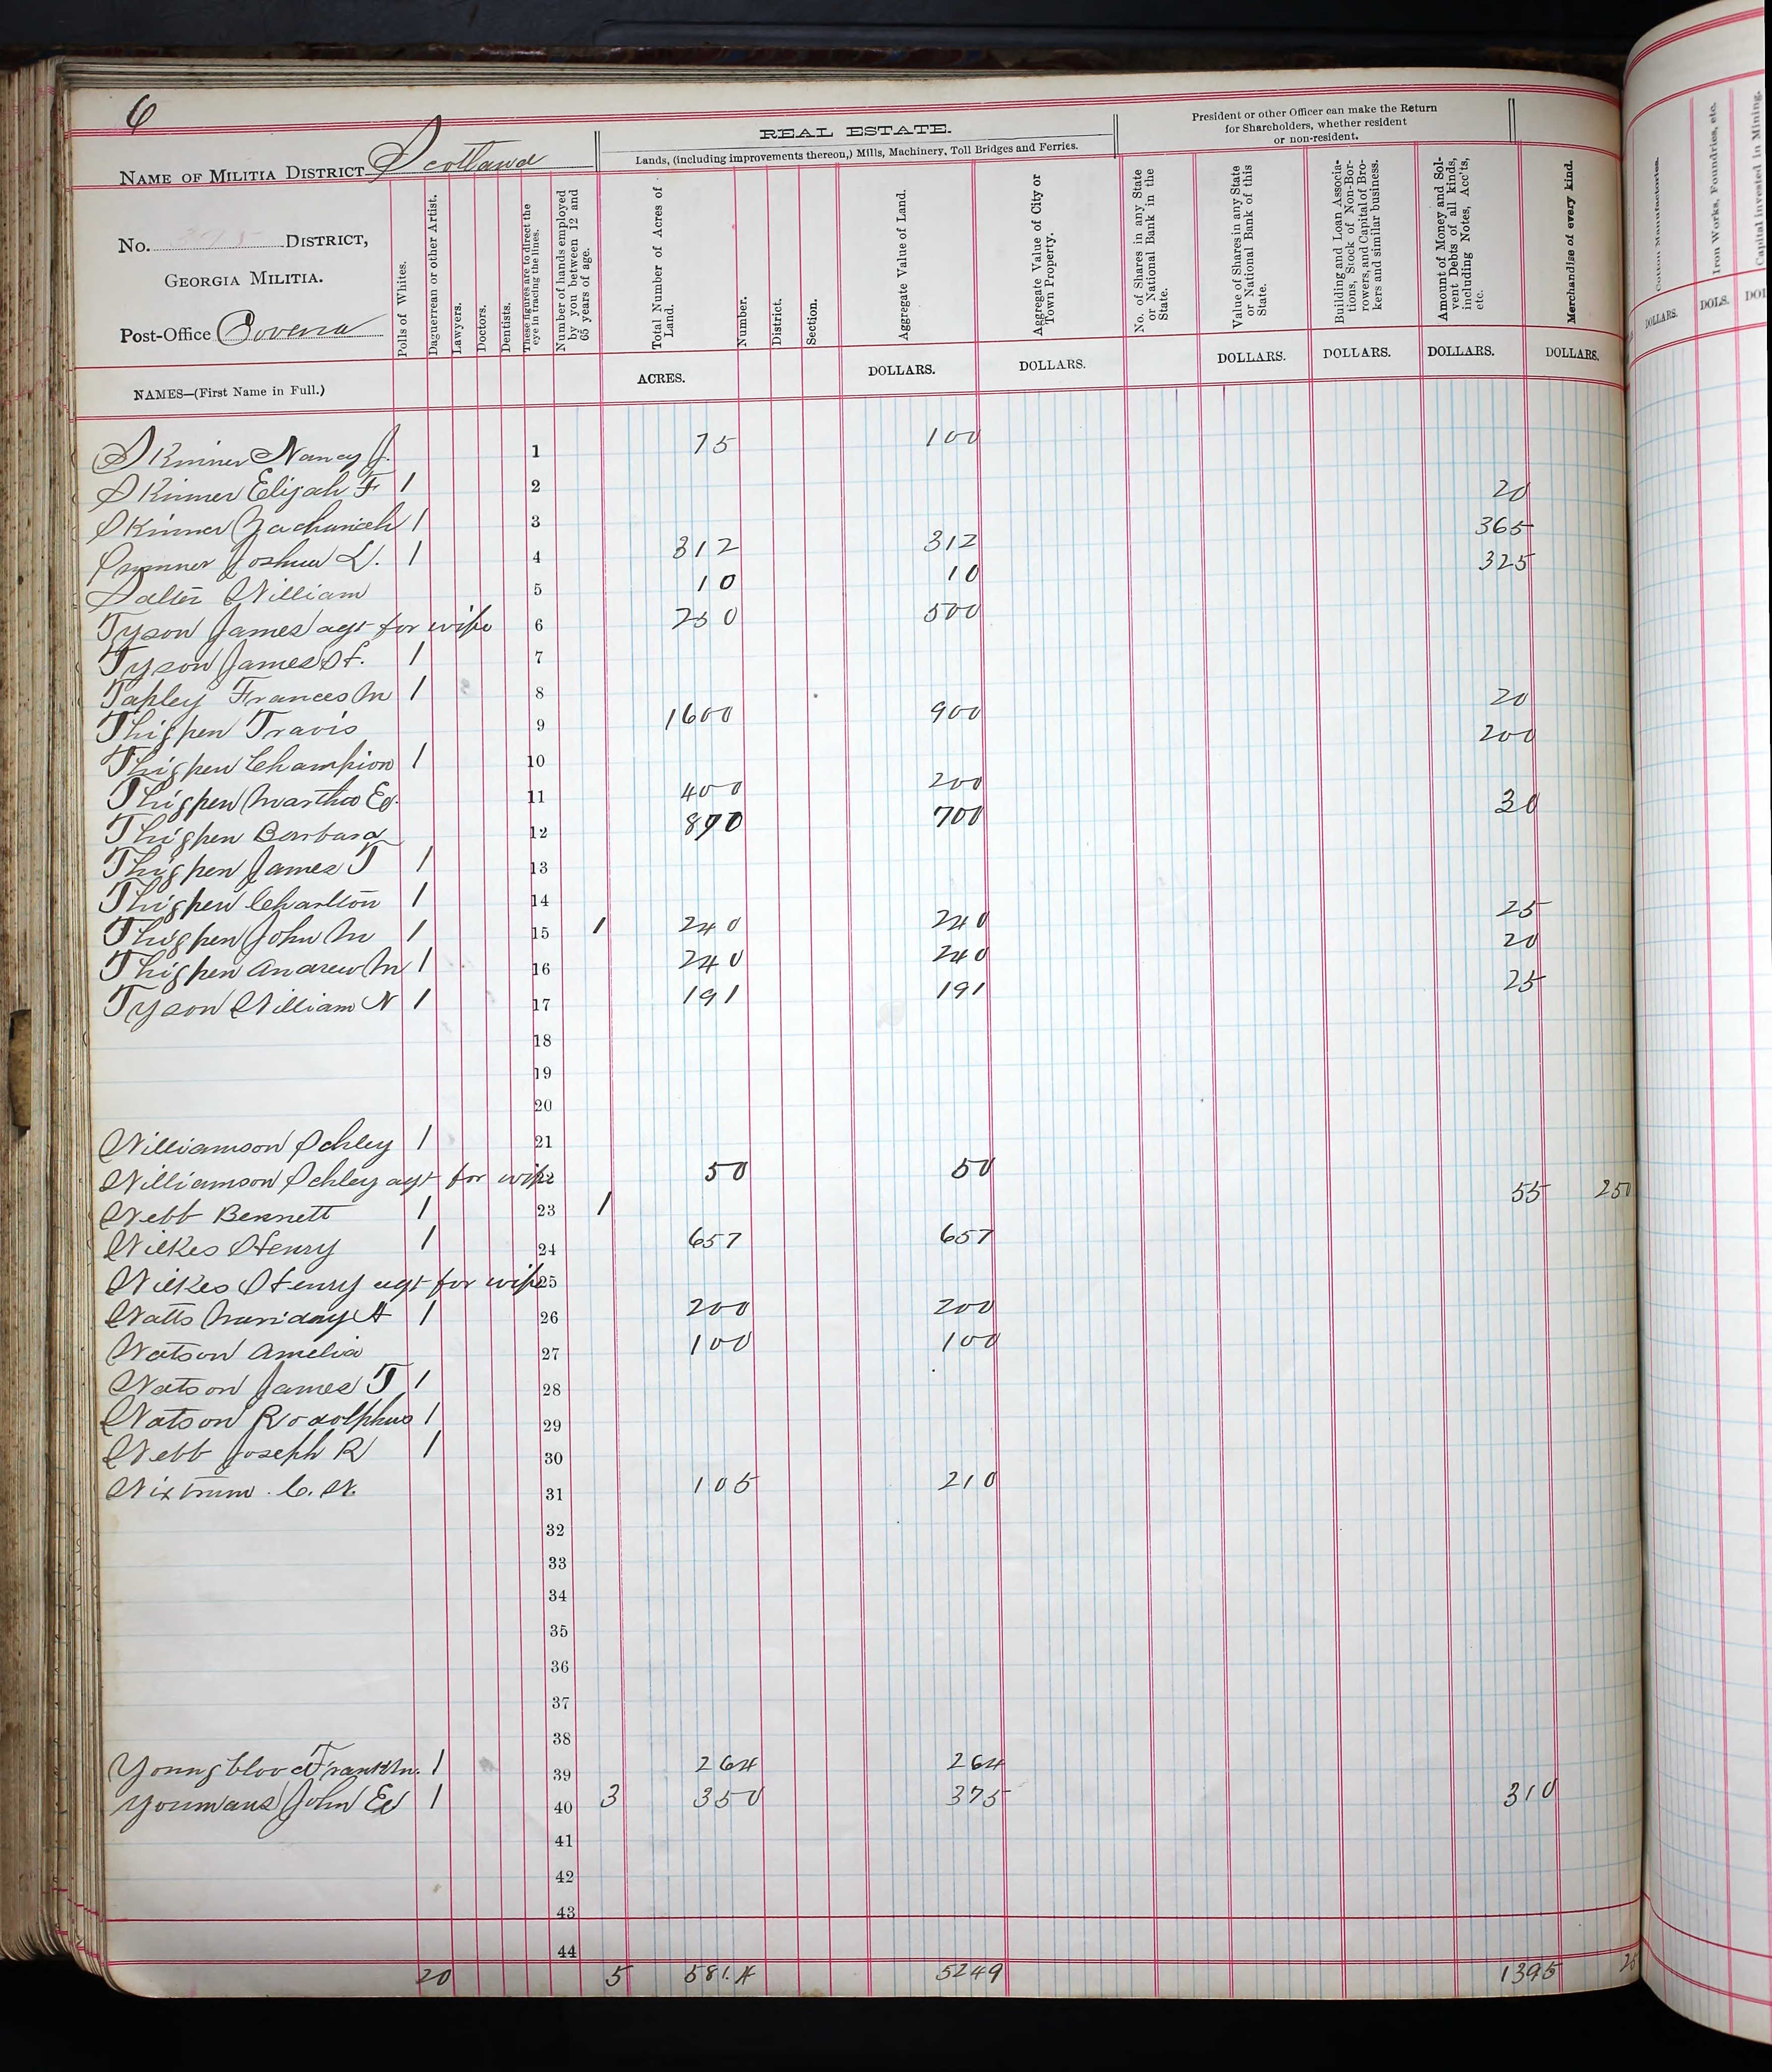 6
NAME OF MILITIA DISTRICT Scotland
No. 395 DISTRICT,
GEORGIA MILITIA.
Post-Office Covena
NAMES—(First Name in Full.)
Polls of Whites.
Daguerrean or other Artist.
Lawyers.
Doctors.
Dentists.
These figures are to direct the eye in tracing the lines.
Number of hands employed by you between 12 and 65 years of age.
REAL ESTATE.
Lands, (including improvements thereon,) Mills, Machinery, Toll Bridges and Ferries.
Total Number of Acres of Land.
ACRES.
Number.
District.
Section.
Aggregate Value of Land.
DOLLARS.
Aggregate Value of City or Town Property.
DOLLARS.
President or other Officer can make the Return
for Shareholders, whether resident
or non-resident.
No. of Shares in any State or National Bank in the State.
Value of Shares in any State or National Bank of this State.
DOLLARS.
Building and Loan Associations, Stock of Non-Borrowers, and Capital of Brokers and similar business.
DOLLARS.
Amount of Money and Solvent Debts of all kinds, including Notes, Acc'ts, etc.
DOLLARS.
Merchandise of every kind.
DOLLARS.
Cotton Manufactories.
DOLLARS.
Iron Works, Foundries, etc.
DOLS.
Capital invested in Mining.
DOL
Skinner Nancy J. 1 75 100
Skinner Elijah F 1 2 20
Skinner Zachariah 1 3 365
Sumner Joshua L. 1 4 312 312 325
Salter William 5 10 10
Tyson James agt for wife 6 250 500
Tyson James H. 1 7
Tapley Frances M 1 8 20
Thigpen Travis 9 1600 900 200
Thigpen Champion 1 10
Thigpen Martha E. 11 400 200 30
Thigpen Barbara 12 890 700
Thigpen James T 1 13
Thigpen Charlton 1 14 25
Thigpen John M 1 15 1 240 240 20
Thigpen Andrew M 1 16 240 240
Tyson William N 1 17 191 191 25
18
19
20
Williamson Schley 1 21
Williamson Schley agt for wife 22 50 50
Webb Bennett 1 23 1 55 250
Wilkes Henry 1 24 657 657
Wilkes Henry agt for wife 25
Watts A 1 26 200 200
Watson Amelia 27 100 100
Watson James T 1 28
Watson Rodolphus 1 29
Webb Joseph R 1 30
C. W. 31 105 210
32
33
34
35
36
37
38
Youngblood Frank M. 1 39 264 264
Youmans John E 1 40 3 350 375 310
41
42
43
44
20 5 5249 1395 25